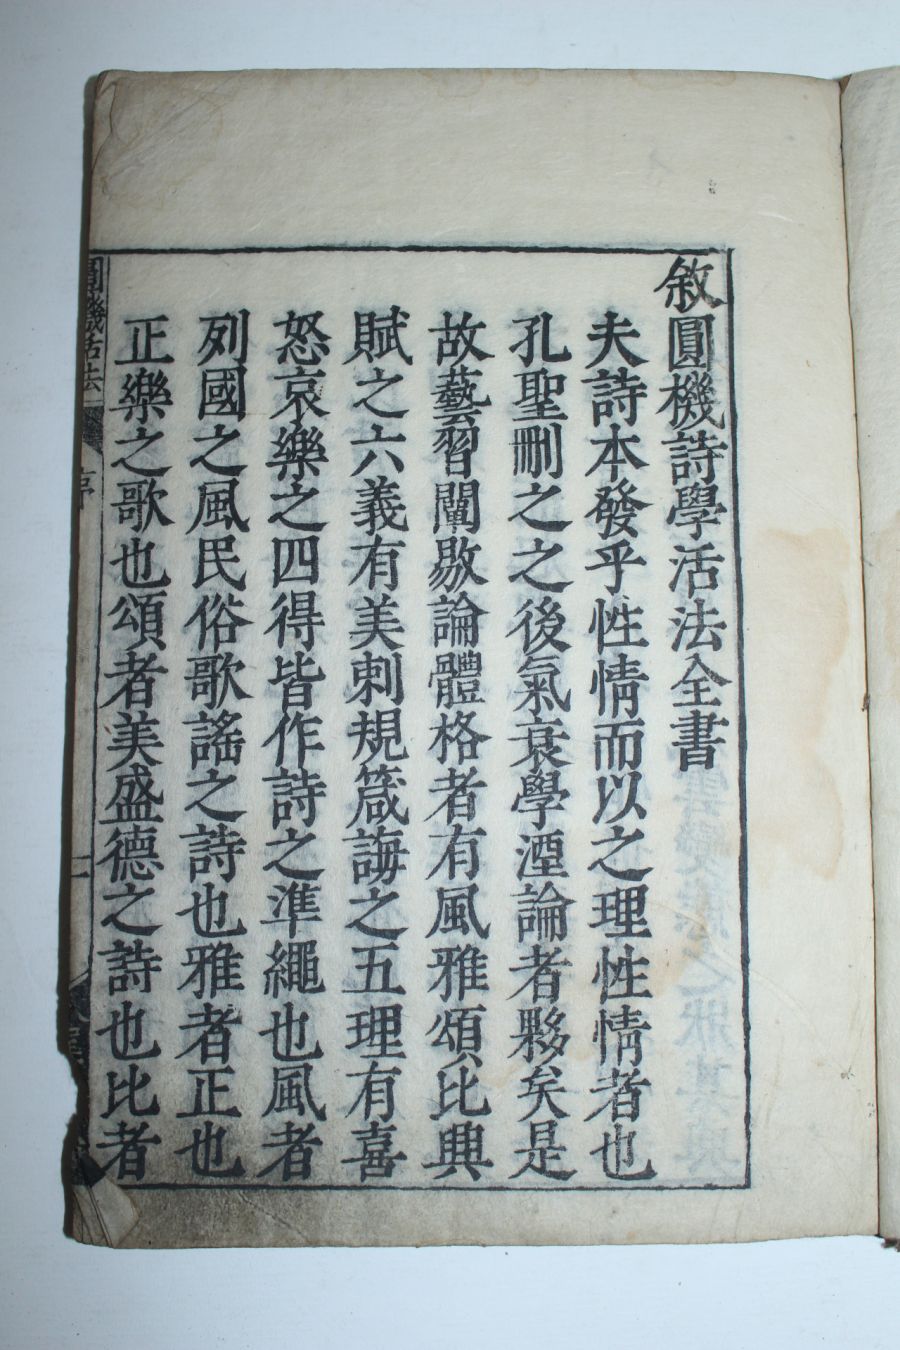 敘圓機詩學活法全書
夫詩本發乎性情而以之理性情者也
孔聖刪之之後氣衰學湮論者夥矣是
故藝習闡敭論體格者有風雅頌比興
賦之六義有美刺規箴誨之五理有喜
怒哀樂之四得皆作詩之準繩也風者
列國之風民俗歌謠之詩也雅者正也
正樂之歌也頌者美盛德之詩也比者
圓機活法 序 一